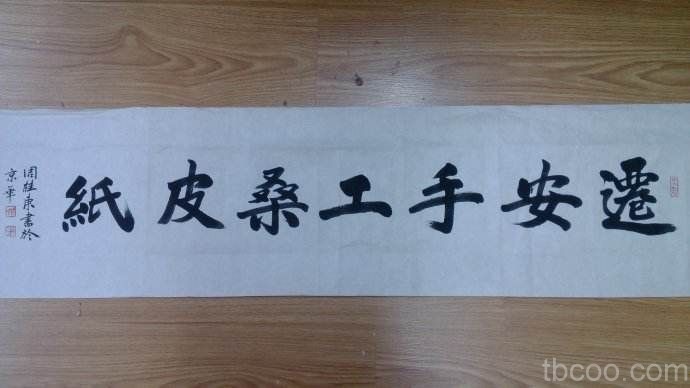 遷安手工桑皮紙
周桂東書於
京華
tbcoo.com